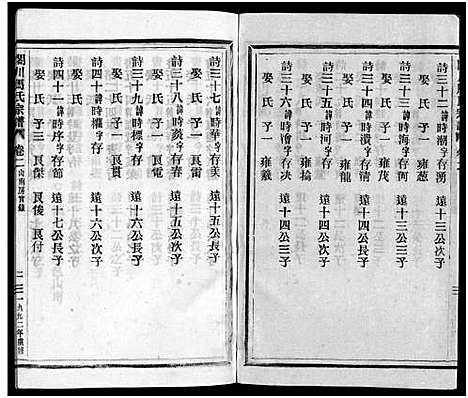 詩三十二諱時潮字存湧 遠十三公次子
娶 氏 子一 雍蔥
詩三十三諱時海字存 遠十三公三子
娶 氏 子一 雍茂
詩三十四諱時江字存 遠十四公長子
娶 氏 子一 雍龍
詩三十五諱時河字存 遠十四公次子
娶 氏 子一 雍掄
詩三十六諱時 字存 遠十四公三子
娶 氏 子一 雍羲
詩三十七諱時華字存美 遠十五公長子
娶 氏 子一 艮電
詩三十八諱時 字存 遠十五公次子
娶 氏 子一 艮雷
詩三十九諱時標字存 遠十六公長子
娶 氏 子一 艮
詩四十諱時標字存 遠十六公次子
娶 氏 子三 艮傑
詩四十一諱時序字存節 遠十七公長子
娶 氏 子二 艮俊 艮付
周氏宗譜 卷二 一九九二年續修